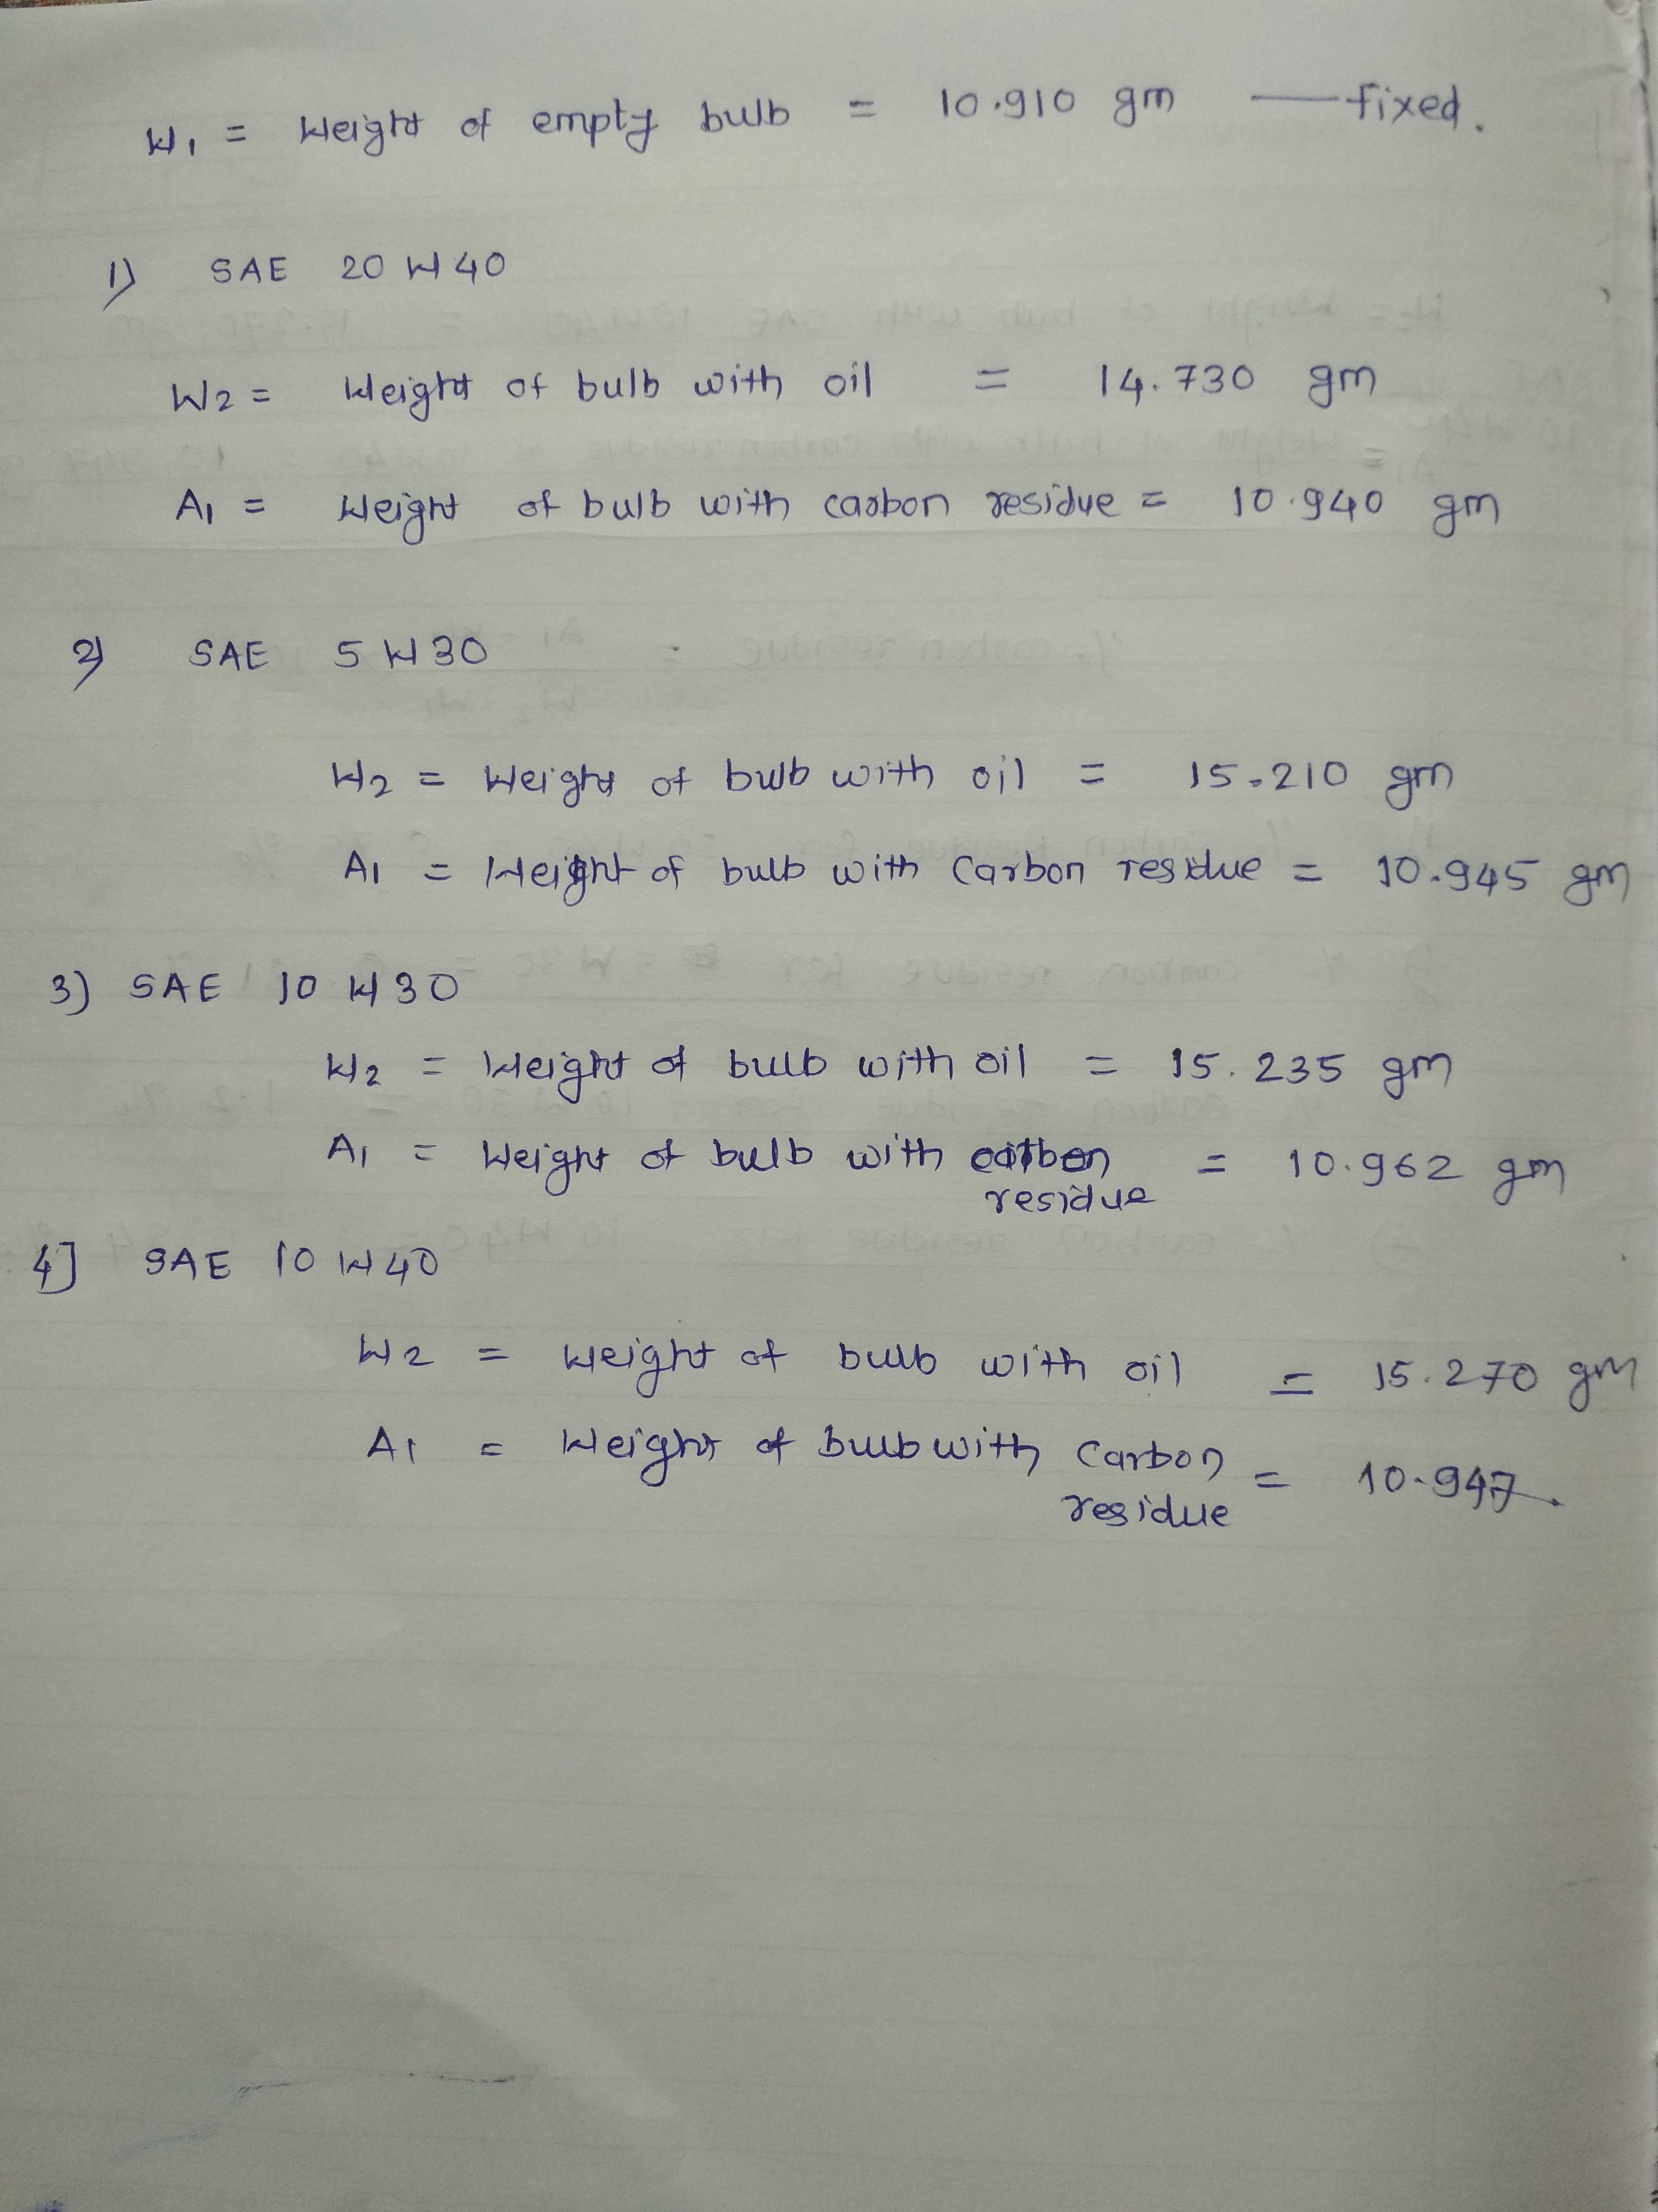 W1 = Weight of empty bulb = 10.910 gm — fixed.
1) SAE 20W40
W2 = Weight of bulb with oil = 14.730 gm
A1 = Weight of bulb with carbon residue = 10.940 gm
2) SAE 5W30
W2 = Weight of bulb with oil = 15.210 gm
A1 = Weight of bulb with Carbon residue = 10.945 gm
3) SAE 10W30
W2 = Weight of bulb with oil = 15.235 gm
A1 = Weight of bulb with carbon = 10.962 gm
residue
4] SAE 10W40
W2 = Weight of bulb with oil = 15.270 gm
A1 = Weight of bulb with Carbon = 10.947.
residue